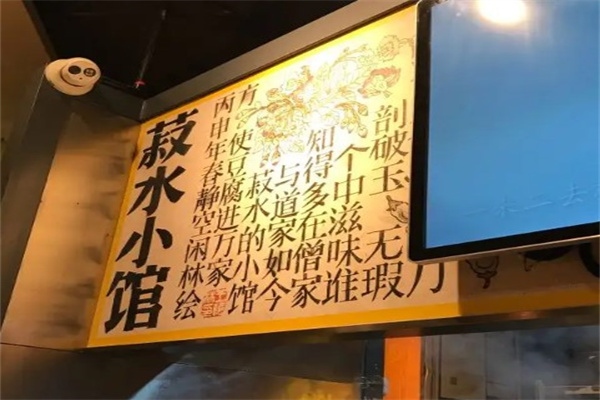 剖破玉无瑕
个中滋味谁
知得多在僧家
与道家如今
菽水的小馆
方使豆腐进万家
丙申年春静空闲林绘
菽水小馆